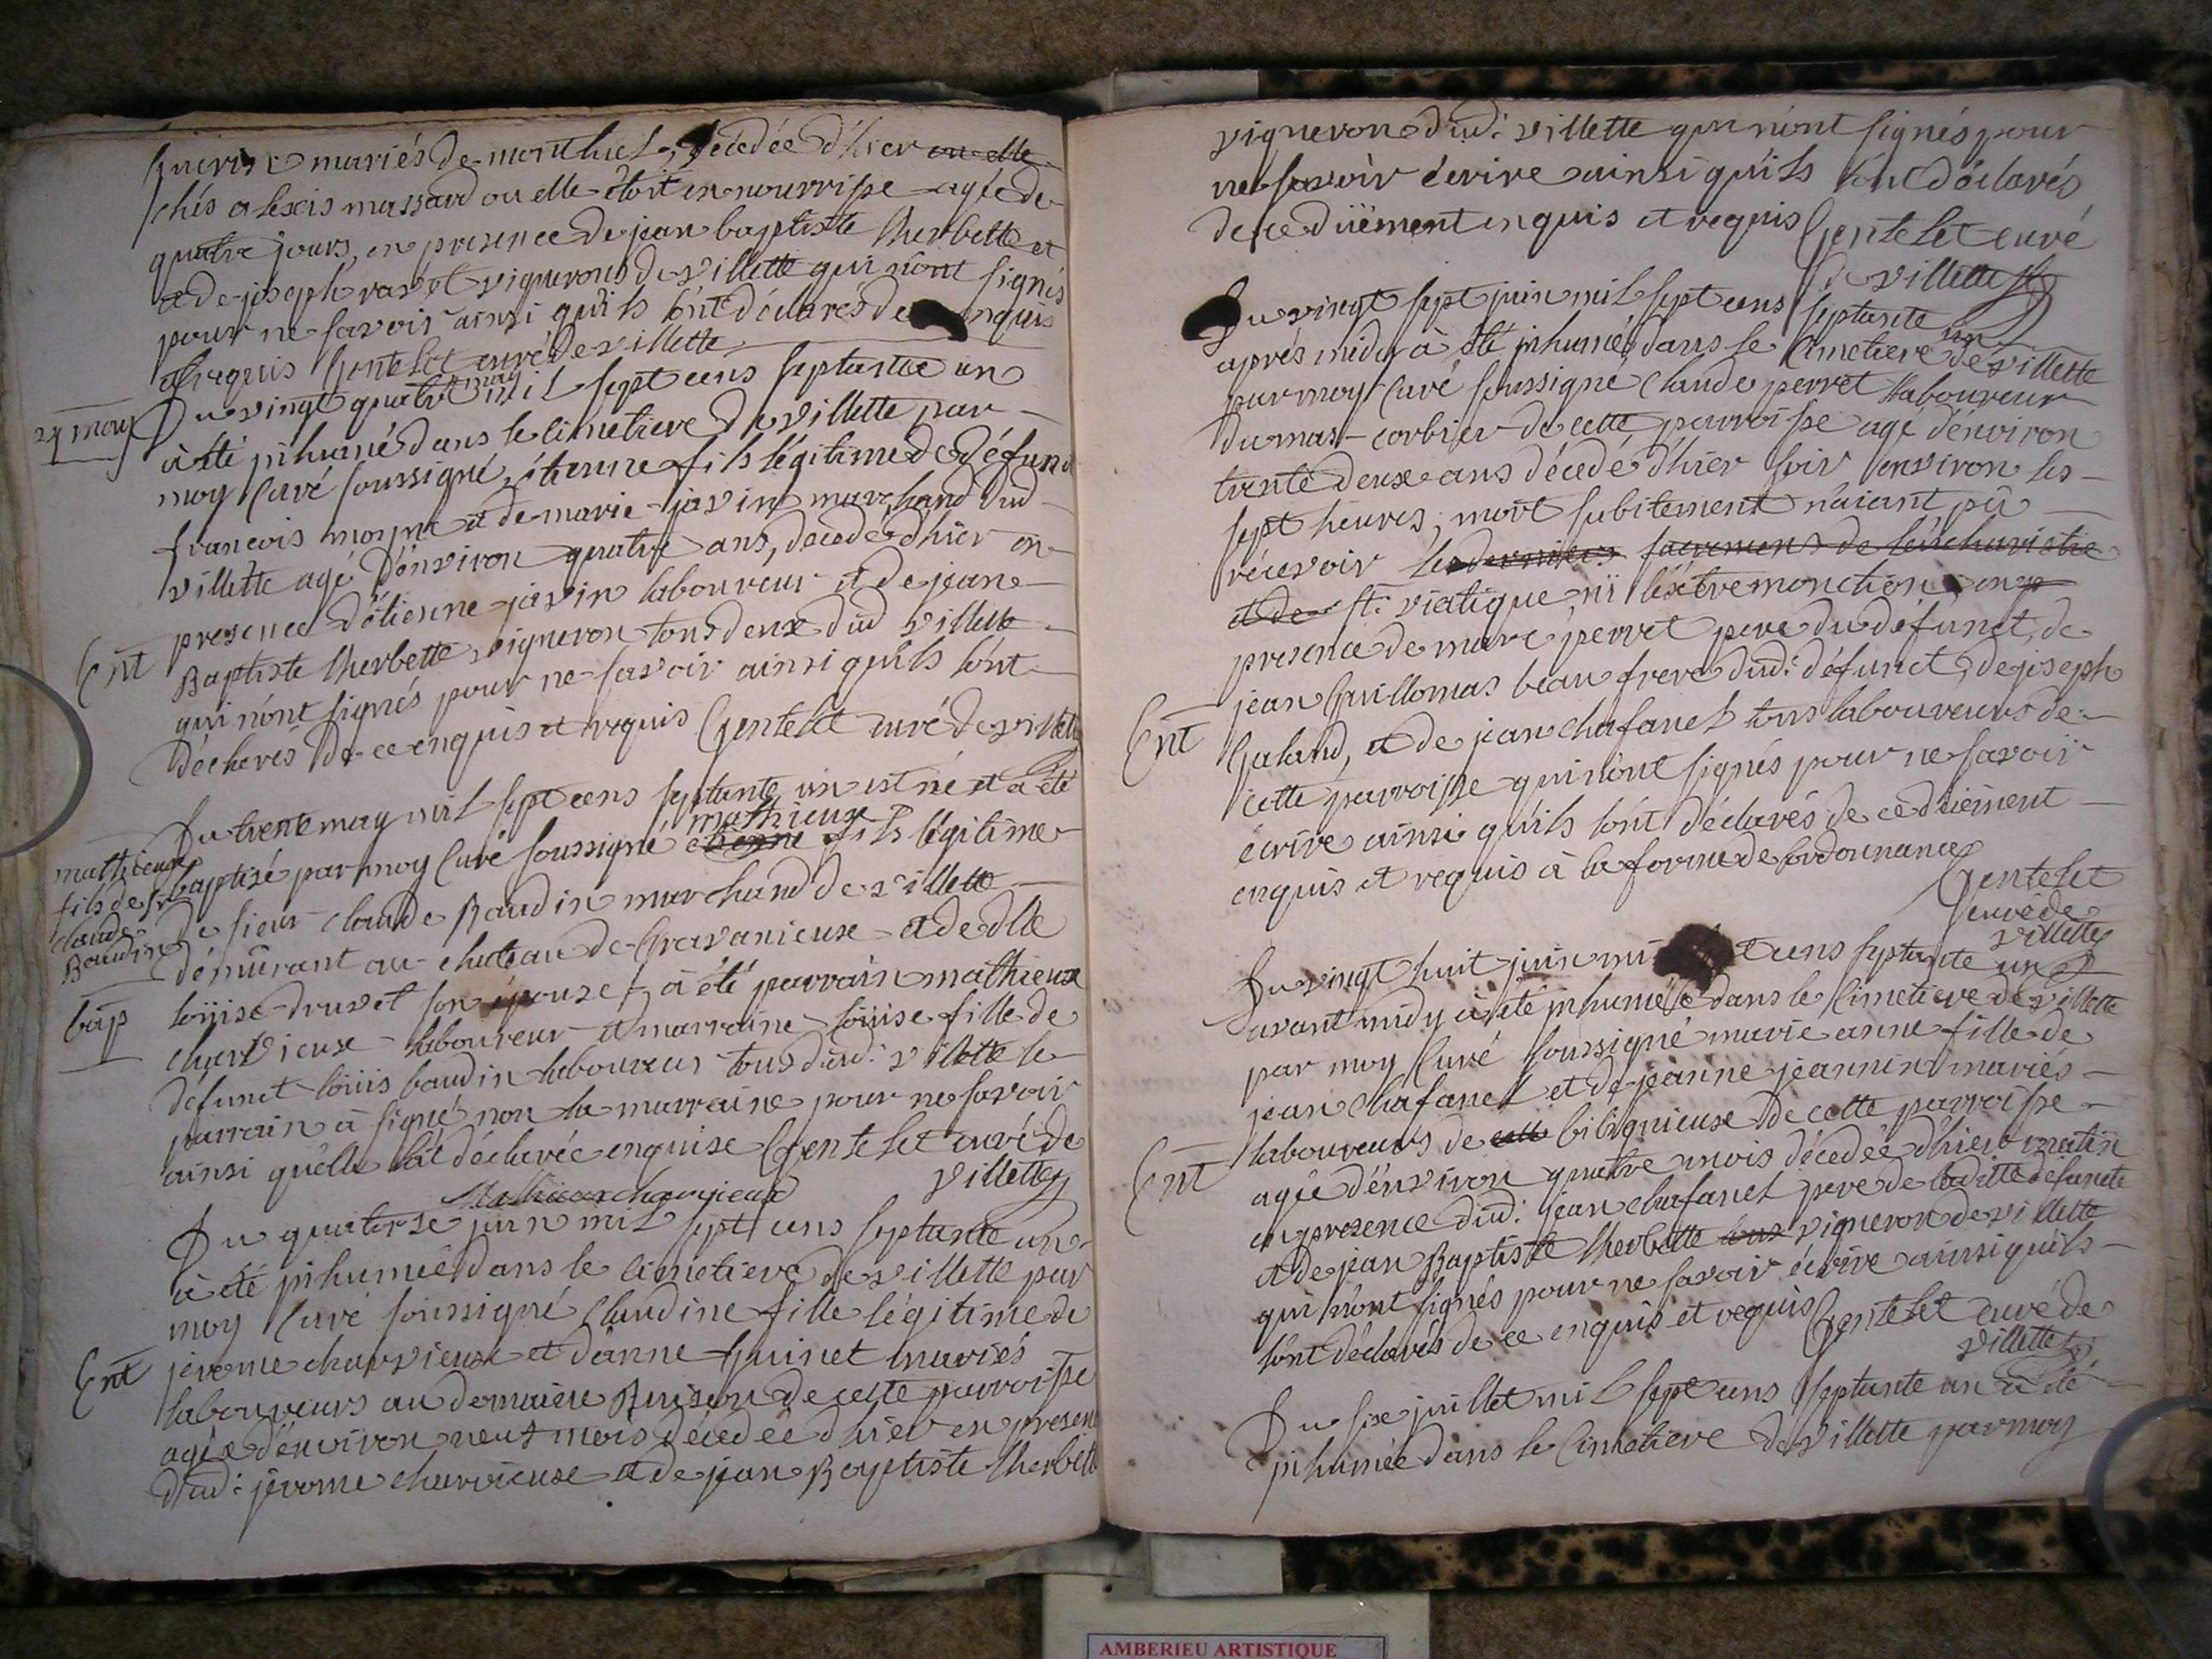 mariés de monthiel, décédée d'hier ou elle
chés alexis massard ou elle étoit en nourrisse agée de
quatre jours, en presence de jean baptiste Cherbette et
et de joseph vigneron de villette qui n'ont signés
pour ne savoir ainsi qu'ils l'ont déclarés de enquis
et requis Gentelet curé de villette
24 may
Du vingt quatre may mil sept cens septante un
à été inhumé dans le cimetiere de villette par
moy curé soussigné, étienne fils légitime de défunt
francois moyne et de marie javin marchand dud
villette agé d'environ quatre ans, décédé d'hier en
Ent
presence d'étienne javin laboureur et de jean
Baptiste Cherbette vigneron tous deux dud villette
qui n'ont signés pour ne savoir ainsi qu'ils l'ont
déclarés de ce enquis et requis Gentelet curé de villette
Du trente may mil sept cens septante un est né et a été
mathieux
fils de sr
claude
Baudin
bap
baptisé par moy curé soussigné etienne mathieux fils légitime
de sieur claude Baudin marchand de villette
démûrant au chateau de Gravanieux et de dlle
loüise druvet son épouse, à été parrain mathieux
charvieux laboureur et marraine loüise fille de
défunct loüis baudin laboureur tous dud: villette le
parrain à signé non la marraine pour ne savoir
ainsi quelle l'at déclarée enquise Gentelet curé de
villette
Mathieux charvieux
Du quatorse juin mil sept cens septante un
à été inhumée dans le cimetiere de villette par
moy curé soussigné claudine fille légitime de
Ent
jerome charvieux et d'anne Guinet mariés
laboureurs au domaine Buisson de cette parroisse
agée d'environ neuf mois décédée d'hier en presen
dud: jérome charvieux et de jean Baptiste Cherbett
vigneron dud: villette qui n'ont signés pour
ne savoir écrire ainsi qu'ils l'ont déclarés
de ce düement enquis et requis Gentelet curé
de villette
Du vingt sept juin mil sept cens septante un
aprés midy à été inhumé dans le Cimetiere de villette
par moy Curé soussigné claude perret laboureur
du mas corbier de cette parroisse agé d'environ
trente deux ans décedé d'hier soir environ les
sept heures, mort subitement n'aiant pû
récevoir les derniers sacremens de léucharistie
et de st: viatique ni léxtremonction en
presence de marc perret pere du défunct, de
jean Guillomas beau frere dud: défunct, de joseph
Ent
Galand, et de jean chafanel tous laboureurs de
cette parroisse qui n'ont signés pour ne savoir
écrire ainsi qu'ils l'ont déclarés de ce düement
enquis et requis à la forme de lordonnance
Gentelet
curé de
villette
Du vingt huit juin mi t cens septante un
avant midy à été inhumée dans le Cimetiere de villette
par moy Curé soussigné marie anne fille de
jean chafanel et de jeanne jeannin mariés
laboureurs de cette bilignieux de cette parroisse
Ent
agée d'environ quatre mois décedée d'hier matin
en presence dud: jean chafanel pere de laditte défuncte
et de jean Baptiste Cherbette tous vigneron de villette
qui n'ont signés pour ne savoir écrire ainsi qu'ils
l'ont déclarés de ce enquis et requis Gentelet curé de
villette
Du six juillet mil sept cens septante un à été
inhumée dans le Cimetiere de villette par moy
AMBERIEU ARTISTIQUE